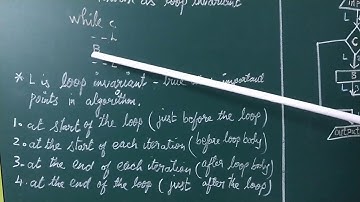 as loop invariant
while c
-- L
B
-- L
* L is loop invariant - true at important
points in algorithm.
1. at start of the loop (just before the loop)
2. at the start of each iteration (before loop body)
3. at the end of each iteration (after loop body)
4. at the end of the loop (just after the loop)
L
C
L
output